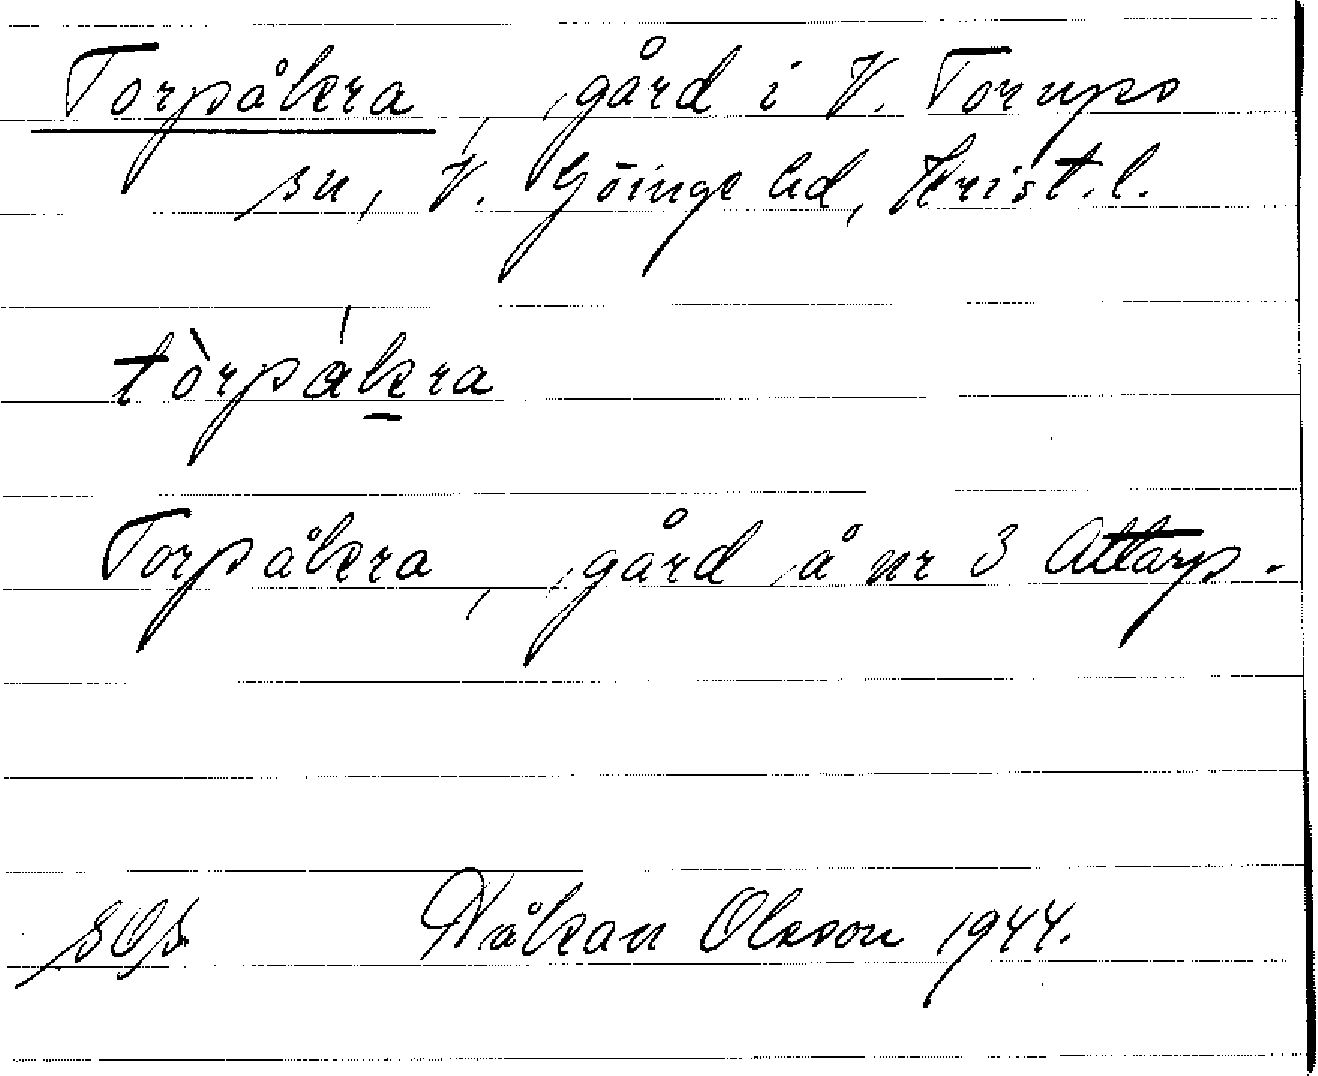 Torpåkra, gård i V. Torups
sn, V. Göinge hd, Krist. l.
tòrpákra
Torpåkra, gård å nr 3 Attarp.
Håkan Olsson 1944.